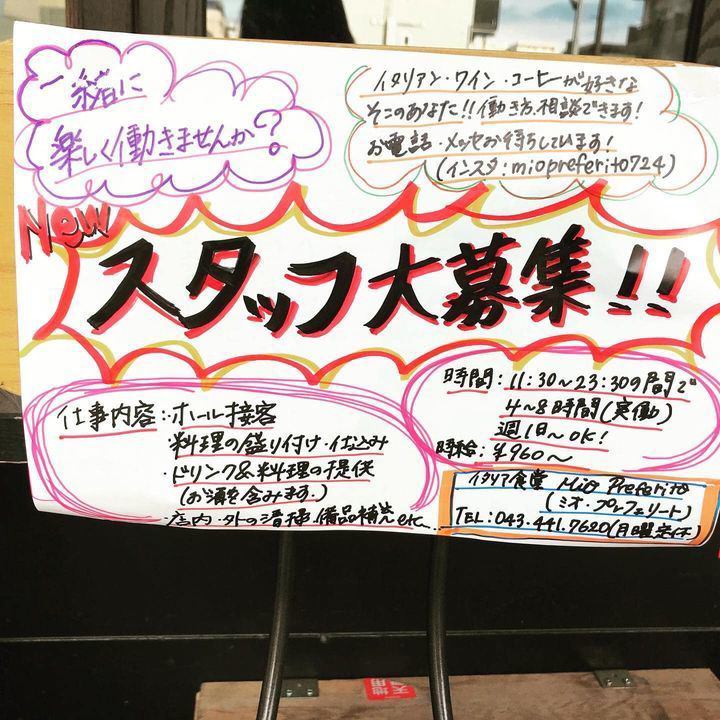 一緒に
楽しく働きませんか?
イタリアン・ワイン・コーヒーが好きな
そこのあなた!!働き方、相談できます!
お電話・メッセお待ちしています!
(インスタ:miopreferito724)
New
スタッフ大募集!!
仕事内容:・ホール接客
・料理の盛り付け・仕込み
・ドリンク&料理の提供
(お酒を含みます。)
・店内・外の清掃、備品補充etc...
時間:11:30~23:30の間で
4~8時間(実働)
週1日~OK!
時給:¥960~
イタリア食堂 Mio Preferito
(ミオ・プレフェリート)
TEL:043.441.7620(月曜定休)
天地用